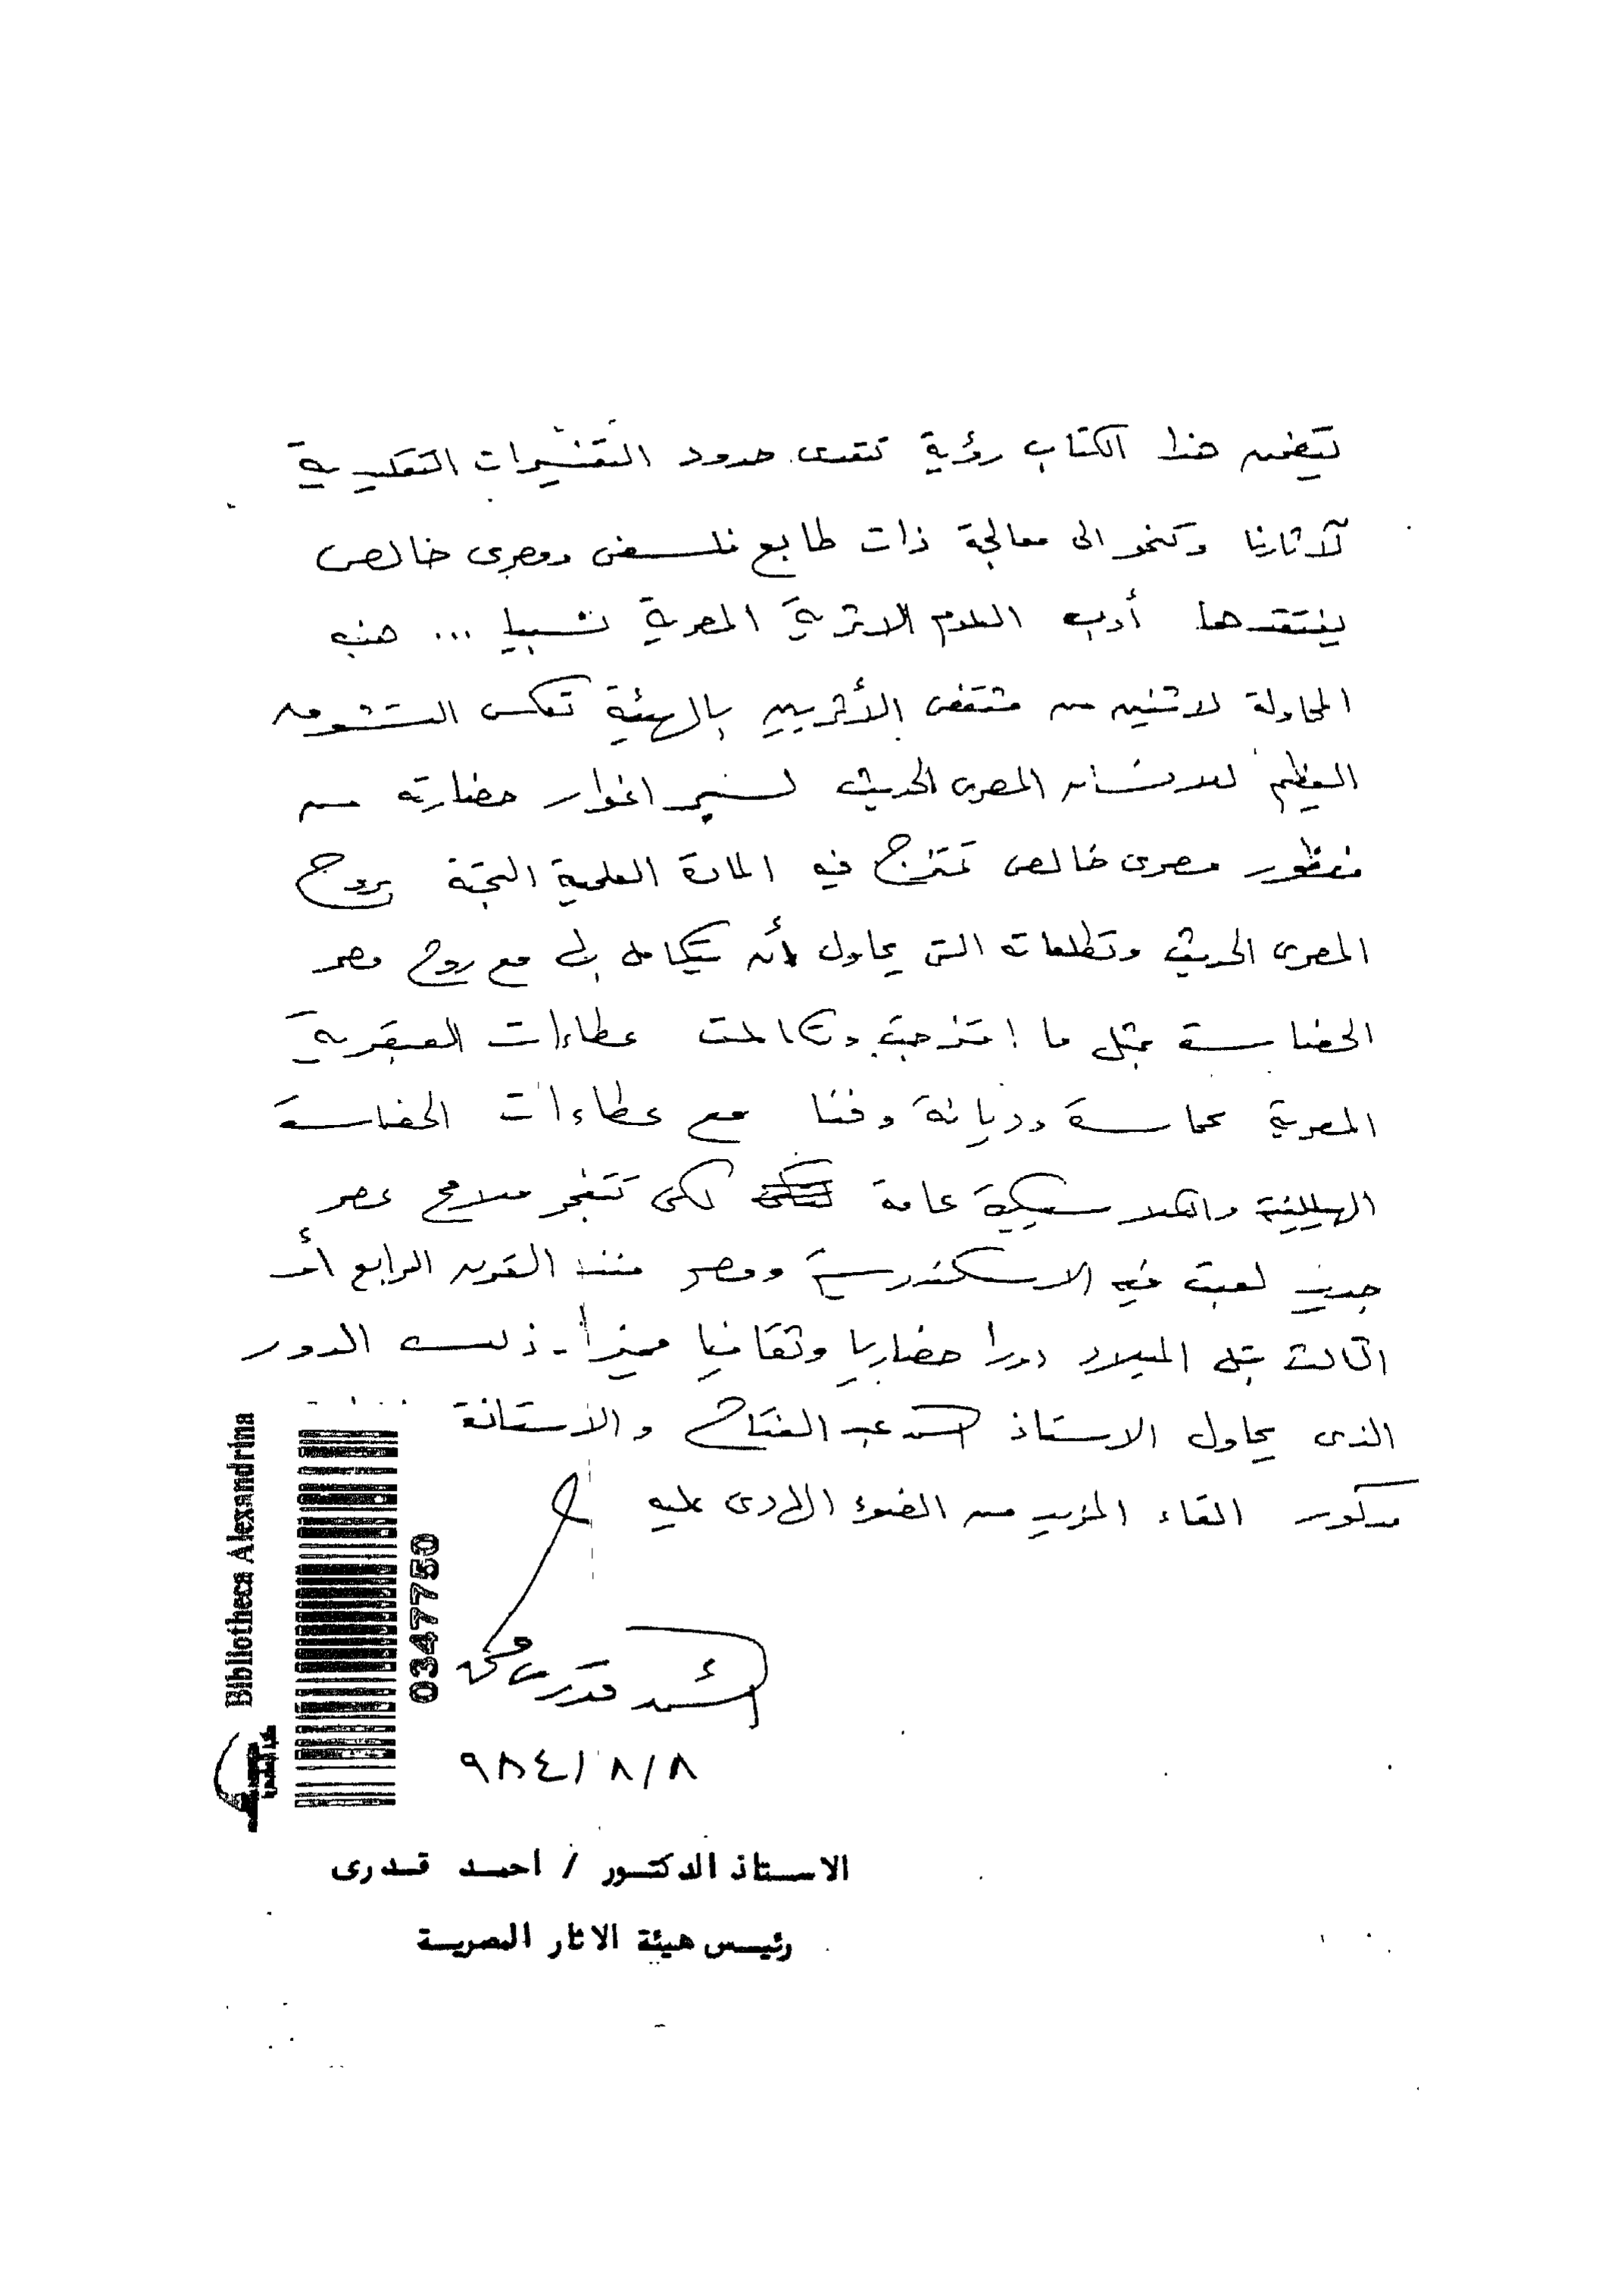 يتضمن هذا الكتاب رؤية تتعدى حدود التفسيرات التقليدية
لآثارنا وتنحو الى معالجة ذات طابع فلسفى ومصرى خالص
يفتقدها أدب العلوم الاثرية المصرية نسبيا ... هذه
المحاولة لاثنين من مثقفى الأثريين بالهيئة تعكس التشوق
العظيم للانسان المصرى الحديث لسبر اغوار حضارته من
منظور مصرى خالص تمتزج فيه المادة العلمية البحتة بروح
المصرى الحديث وتطلعاته التى يحاول أن يتكامل بها مع روح مصر
الخالصة بمثل ما امتزجت وتكاملت عطاءات العبقرية
المصرية وديانة وفنا مع عطاءات
الهيللينية والكلاسيكية عامة لكى تتفجر ملامح عصر
جديد لعبت فيه الاسكندرية ومصر منذ القرن الرابع أو
الثالث قبل الميلاد دورا حضاريا وثقافيا مميزا - ذلك الدور
الذى يحاول الاستاذ عبد الفتاح والاستاذة
مدكور القاء المزيد من الضوء عليه
أحمد قدرى
٩٨٤/٨/٨
الاستاذ الدكتور / احمد قدرى
رئيس هيئة الاثار المصرية
Bibliotheca Alexandrina
0347750